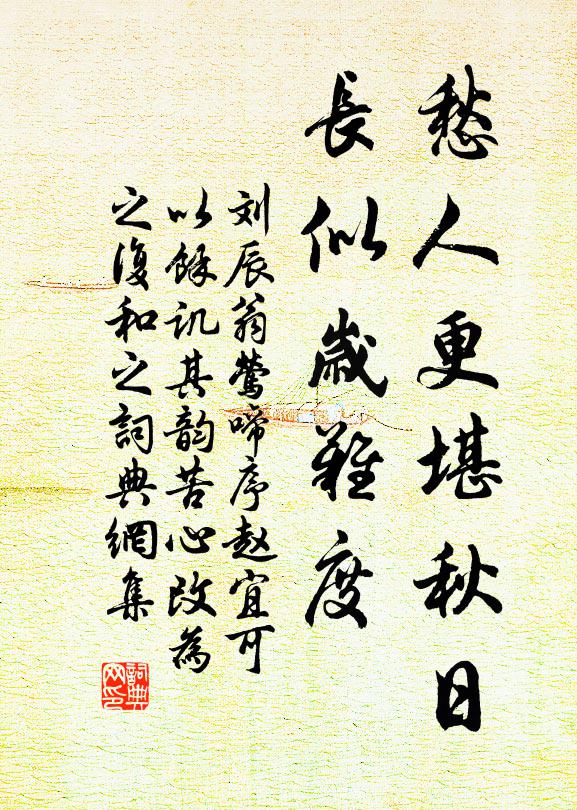 愁人更堪秋日
長似歲難度
刘辰翁鶯啼序赵宜可
以餘讥其韵苦心改為
之復和之詞典網集
詞典
网印